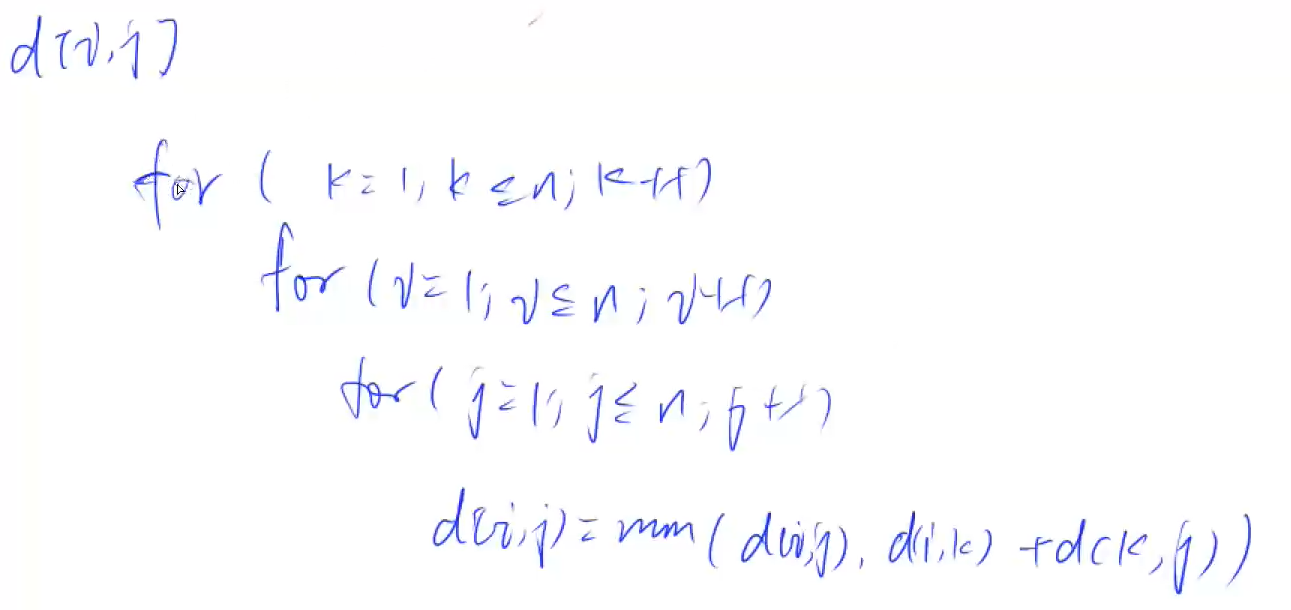 d[i,j]
for ( k=1, k≤n; k++)
for (i=1; i≤n; i++)
for( j=1; j≤n; j++)
d(i,j)=min(d(i,j), d(i,k)+d(k,j))